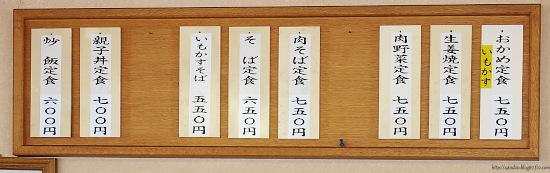 おかめ定食 七五〇円
いもかす
生姜焼定食 七五〇円
肉野菜定食 七五〇円
肉そば定食 七五〇円
そば定食 六五〇円
いもかすそば 五五〇円
親子丼定食 七〇〇円
炒飯定食 六〇〇円